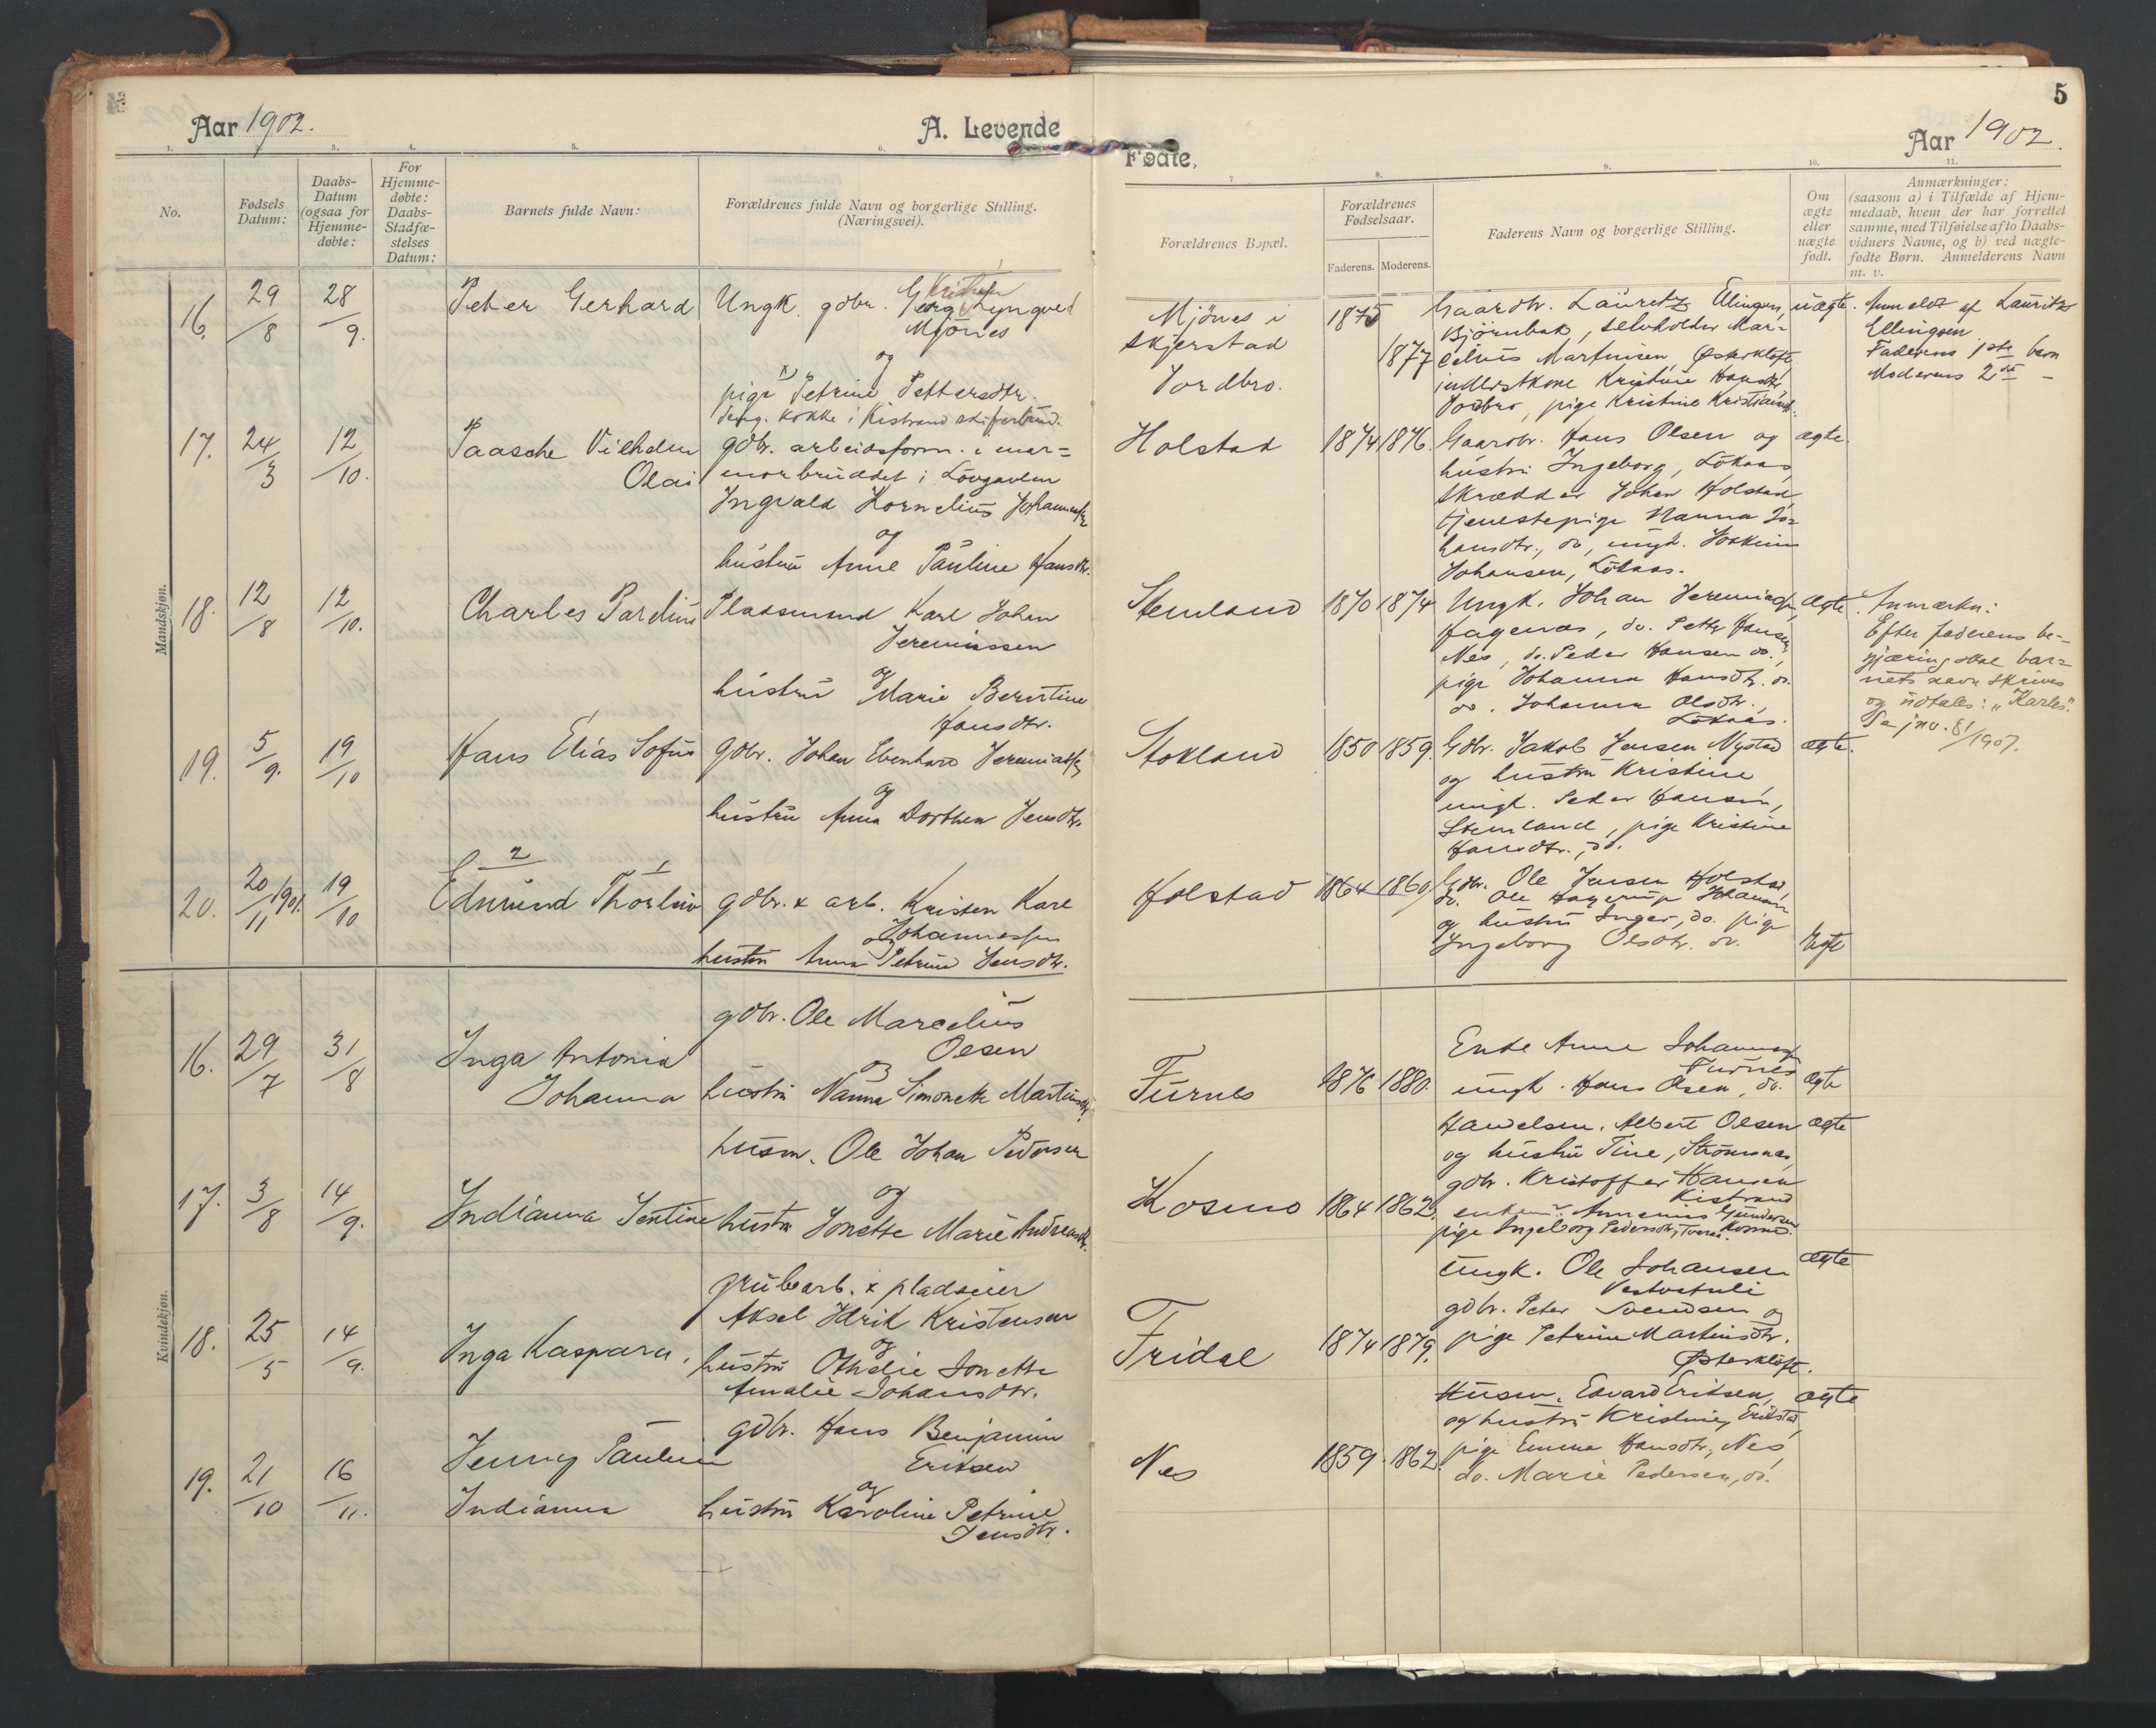 Aar 1902.
A. Levende
Fødte,
Aar 1902.
5
1. 3. 4. 5. 6. 7 8. 9. 10. 11.
No.
Fødsels Datum:
Daabs-Datum (ogsaa for Hjemme-døbte:
For Hjemme-døbte: Daabs-Stadfæ-stelses Datum:
Barnets fulde Navn:
Forældrenes fulde Navn og borgerlige Stilling.
(Næringsvei).
Forældrenes Bopæl.
Forældrenes Fødselsaar.
Faderens. Moderens.
Faderens Navn og borgerlige Stilling.
Om ægte eller uægte født.
Anmærkninger:
(saasom a) i Tilfælde af Hjem-
medaab, hvem der har forrettet
samme, med Tilføielse af to Daabs-
vidners Navne, og b) ved uægte-
fødte Børn. Anmelderens Navn
m. v.
Mandskjøn.
16. 29/8 28/9.
Peter Gerhard
Ungk. gdbr. Georg Lyngved
Kristian
Mjönes
og
pige Petrine Pettersdtr.
x) Kokke i Kistrand skiferbrud.
Mjönes i
Skjerstad
Vordbro.
1875
1877
Gaardbr. Lauretz Ellingsen,
Björnbak, selvholder Mar-
celius Martinsen, Østerkløft,
inderstkone Kristine Hansdtr.
Vordbro, pige Kristine Kristians
uægte.
Anmeldt af Lauritz
Ellingsen
Faderens 1ste barn
Moderens 2det –
17. 24/3 12/10.
Paasche Vilhelm
Olai
gdbr. arbeidsform. i mar=
morbruddet i Lövgavlen
Ingvald Kornelius Johannessen
og
hustru Anne Pauline Hansdtr.
Holstad
1874 1876.
Gaardbr. Hans Olsen og
hustru Ingeborg, Lökaas,
skrædder Johan Holstad,
tjenestepige Nanna Jo=
hansdtr., do, ungk. Joakim
Johansen, Lökaas.
ægte.
18. 12/8 12/10.
Charles Pardius
Pladsmand Karl Johan
Jeremiassen
og
hustru Marie Berntine
Hansdtr.
Stemland
1870 1874
Ungk. Johan Jeremiassen,
Hagenæs, do. Petter Hansen
Nes, do. Peder Hansen do.,
pige Johanna Hansdtr. do.
do. Johanna Olsdtr.,
Lökaas.
Ægte.
Anmærkn:
Efter faderens be-
gjæring skal bar=
nets navn skrives
og udtales: "Karles".
Se jno. 81/1907.
19. 5/9. 19/10
Hans Elias Sofus
Gdbr. Johan Ebenhard Jeremiassen
og
hustru Anna Dorthea Jensdtr.
Stokland
1850 1859.
Gdbr. Jakob Jensen Nystad
og hustru Kristine,
ungk. Peder Hansen,
Stemland, pige Kristine
Hansdtr., do.
ægte.
20. 20/11 1901. 19/10
2 1
Edmund Thorleiv
gdbr. & arb. Kristen Karl
Johannessen
og
hustru Anna Petrine Jensdtr.
Holstad
1864 1860
Gdbr. Ole Jensen Holstad,
do. Ole Hagerup Johansen
og hustru Inger, do. pige
Ingeborg Olsdtr. do.
Ægte
Kvindekjøn.
16. 29/7 31/8
Inga Antonia
Johanna
gdbr. Ole Marcelius
Olsen
og
hustru Nanna Simonette Martinsdtr.
Furnes
1876 1880.
Enke Anne Johannesen
Furnes
ungk. Hans Olsen, do.
ægte
17. 3/8 14/9.
Indianna Jentine
husm. Ole Johan Pedersen
og
hustru Jonette Marie Andreasdtr.
Kosmo
1864 1862.
Handelsm. Albert Olsen
og hustru Tine, Strömsnæs,
gdbr. Kristoffer Hansen
Kistrand
enkem. Annanias Gundersen
pige Ingeborg Pedersdtr, Tverå Kosmo.
ægte
18. 25/5 14/9.
Inga Kaspara.
grubearb. & pladseier
Aksel Idrik Kristensen
og
hustru Othelie Jonette
Amalie Johansdtr.
Fridal
1874 1879.
ungk. Ole Johansen
Vestvatnli
gdbr. Peter Svendsen og
pige Petrine Martinsdtr.
Østerkløft.
ægte
19. 21/10 16/11.
Jenny Pauline
Indianna
gdbr. Hans Benjamin
Eriksen
og
hustru Karoline Petrine
Jensdtr.
Nes
1859. 1862.
Husm. Edvard Eriksen,
og hustru Kristine, Erikstad,
pige Emma Hansdtr., Nes,
do. Marie Pedersen, do.
ægte